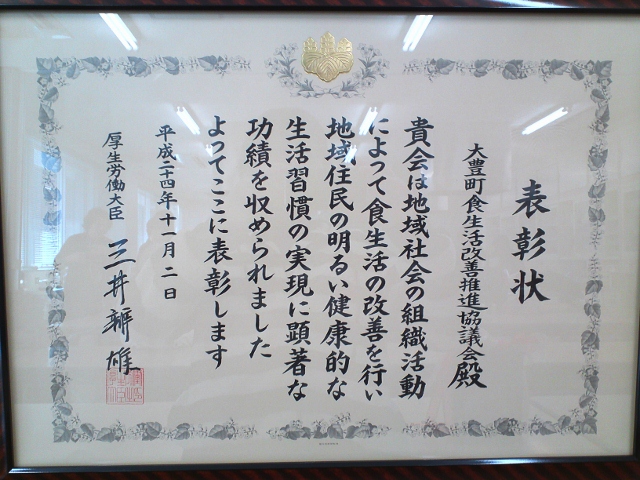 表彰状
大豊町食生活改善推進協議会殿
貴会は地域社会の組織活動
によって食生活の改善を行い
地域住民の明るい健康的な
生活習慣の実現に顕著な
功績を収められました
よってここに表彰します
平成二十四年十一月二日
厚生労働大臣 三井辨雄